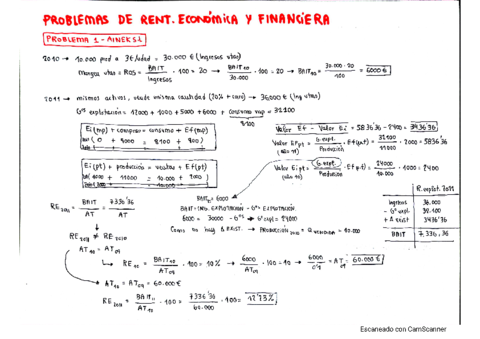 PROBLEMAS DE RENT. ECONÓMICA Y FINANCIERA
PROBLEMA 1 - AINEK S.L
2010 → 10.000 prod a 3€/udad = 30.000 € (ingresos vtas)
margen vtas = ROS = BAIT / Ingresos · 100 = 20 → BAIT10 / 30.000 · 100 = 20 → BAIT10 = 30.000 · 20 / 100 = 6000 €
2011 → mismos activos, vende misma cantidad (20% + caro) → 36000 € (ing vtas)
Gos explotación = 12000 + 1000 + 5000 + 6000 + consumo mp = 32100
8100
Ei (mp) + compras = consumo + Ef (mp)
0 + 9000 = 8100 + 900
Ei (pt) + producción = ventas + Ef (pt)
1000 + 11000 = 10.000 + 2000
Valor Ef - Valor Ei = 5836'36 - 2400 = 3436'36
Valor Ef pt (año 11) = G. expl. / Producción · Ef (pt) = 32100 / 11000 · 2000 = 5836'36
Valor Ei pt (año 10) = G. expl. / Producción · Ef p.t) = 24000 / 10.000 · 1000 = 2400
BAIT10 = 6000
BAIT = ING. EXPLOTACIÓN - Gos EXPLOTACIÓN
6000 = 30000 - Gos → Gos expl = 24000
Como no hay Δ EXIST. → PRODUCCIÓN 2010 = Q VENDIDA = 10.000
RE 2011 = BAIT / AT = 7336'36 / AT
RE 2011 ≠ RE 2010
AT10 = AT09
RE10 = BAIT10 / AT09 · 100 = 10% → 6000 / AT09 · 100 = 10 → 6000 / 0'1 = AT09 = 60.000 €
AT10 = AT09 = 60.000 €
RE 2011 = BAIT11 / AT10 · 100 = 7336'36 / 60.000 · 100 = 12'23%
R. explot. 2011
Ingresos 36.000
- Gos expl 32.100
+ Δ exist 3436'36
BAIT 7.336,36
Escaneado con CamScanner